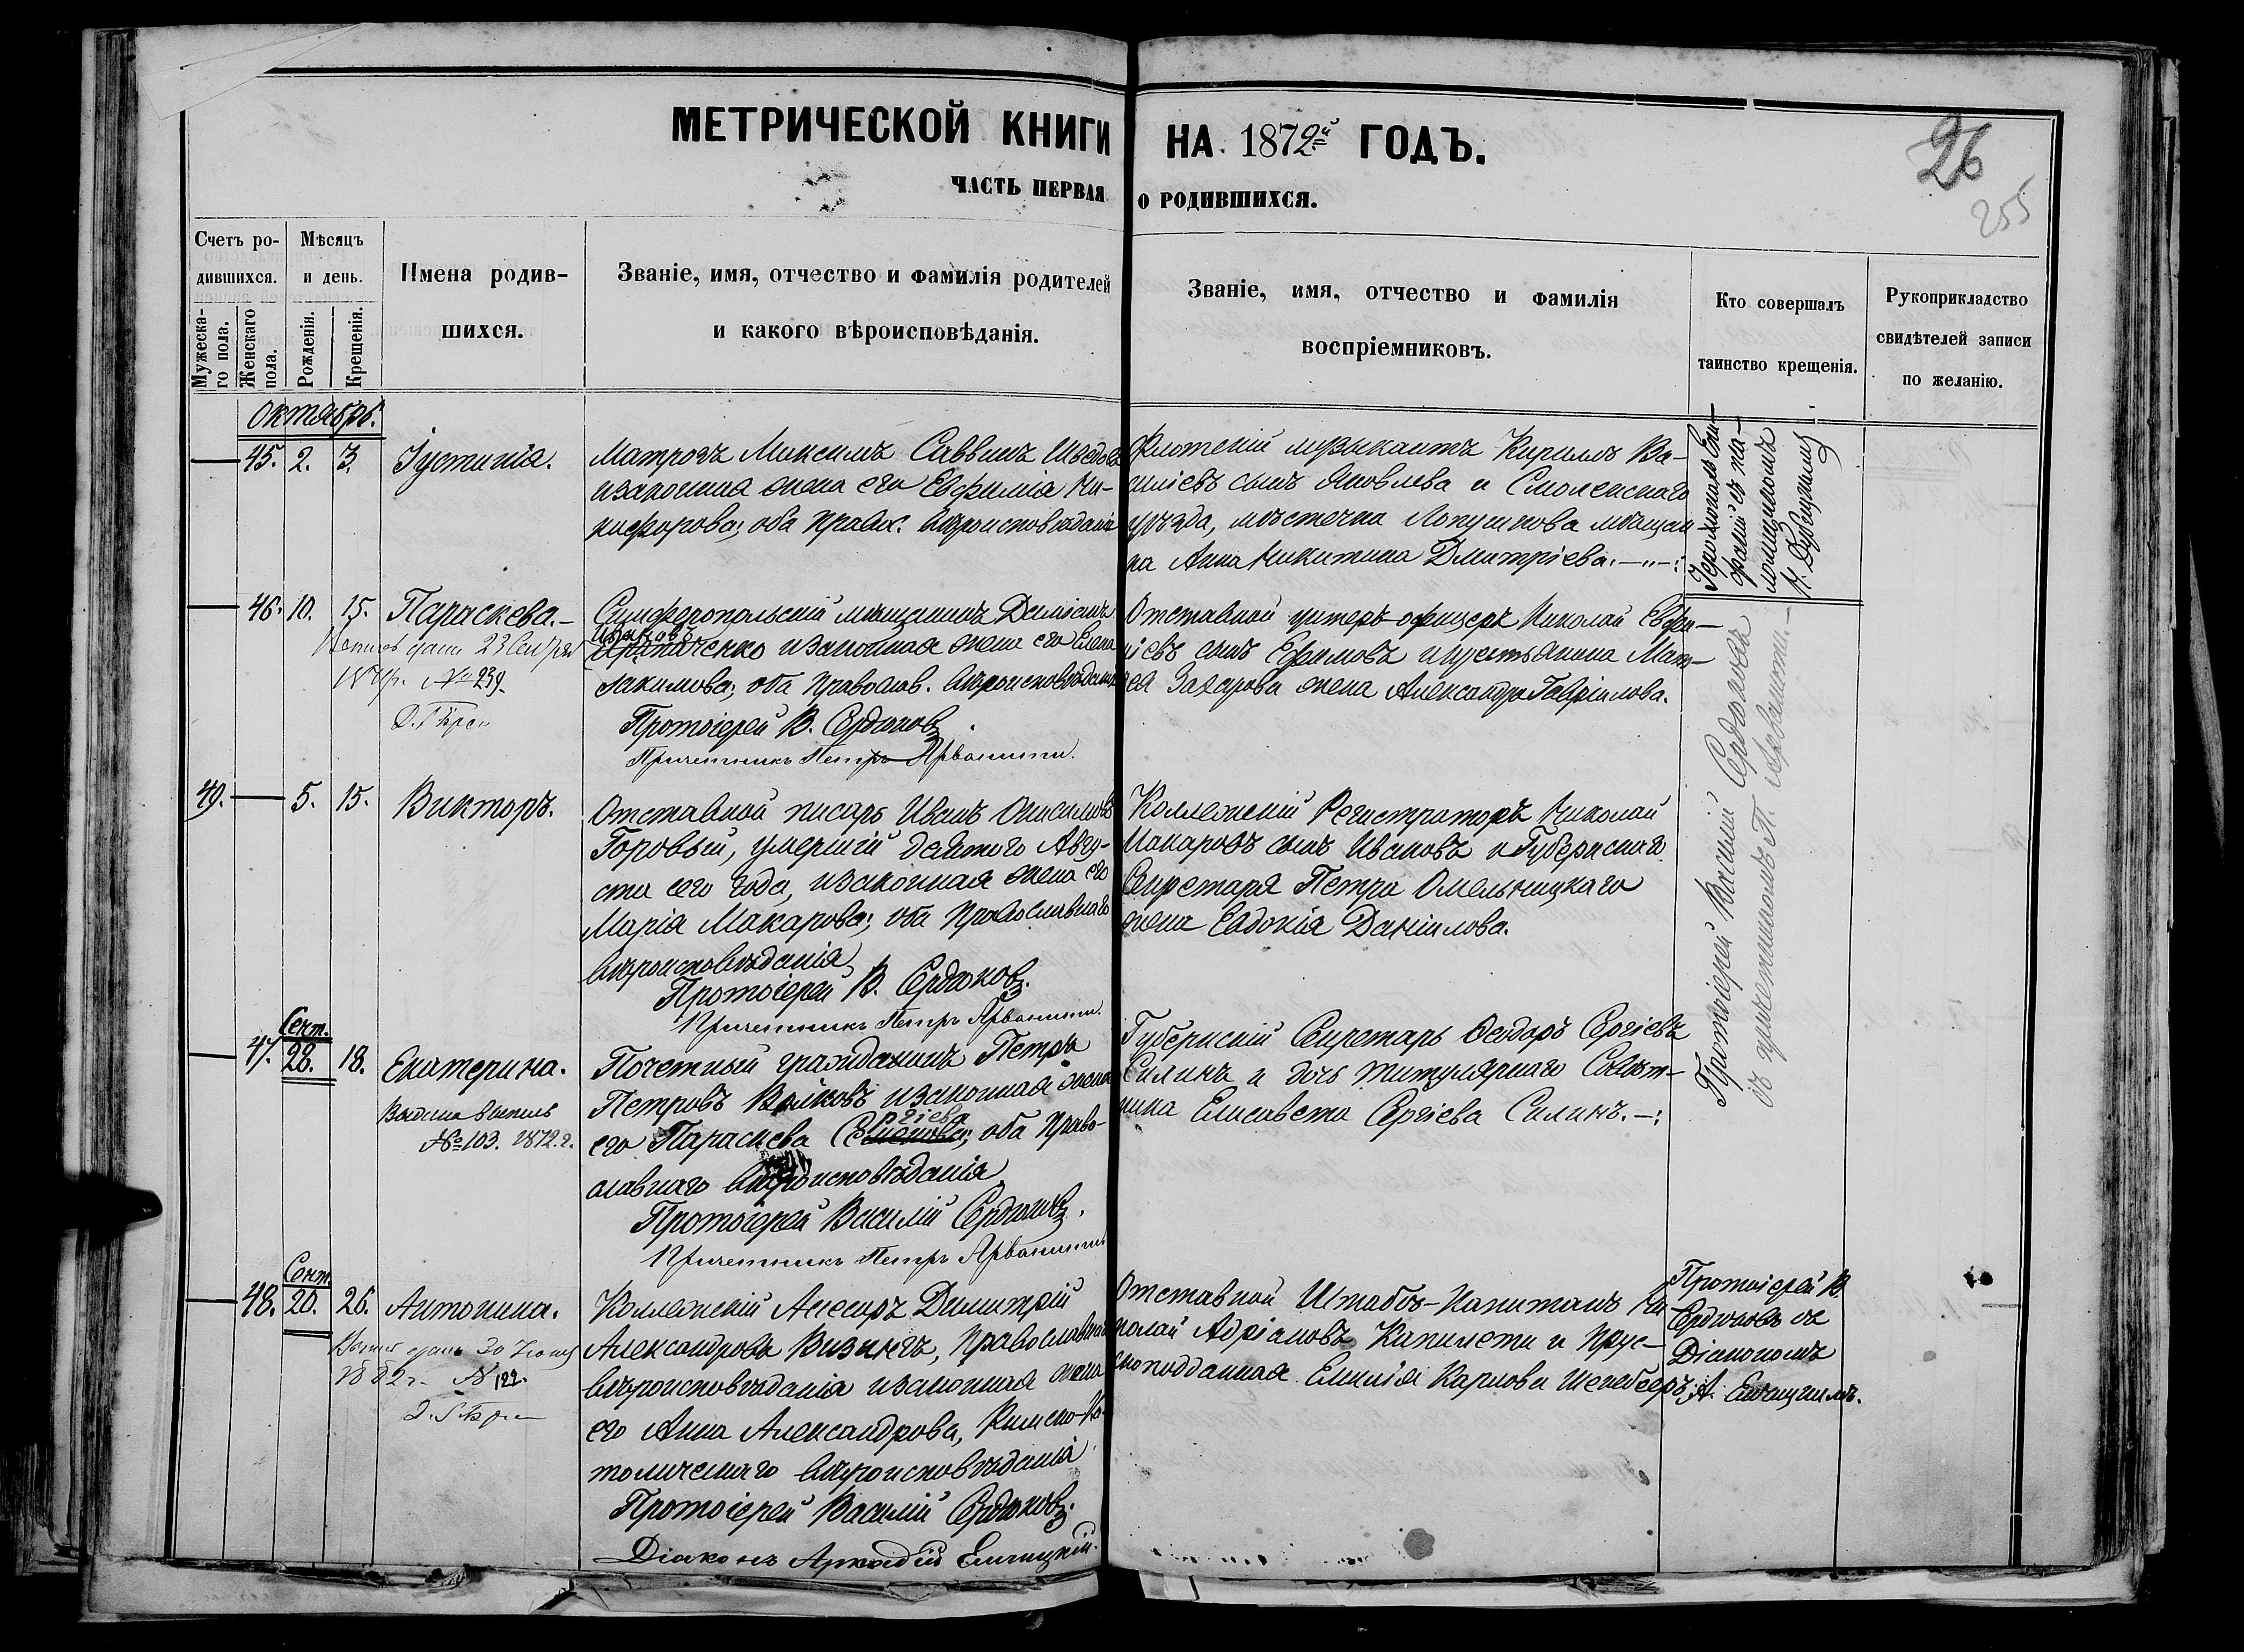 МЕТРИЧЕСКОЙ КНИГИ НА 1872й ГОДЪ.
ЧАСТЬ ПЕРВАЯ О РОДИВШИХСЯ.
26
255
Счетъ ро-
дившихся.
Мужеска-
го пола.
Женскаго
пола.
Мѣсяцъ
и день.
Рожденія.
Крещенія.
Имена родив-
шихся.
Званіе, имя, отчество и фамилія родителей
и какого вѣроисповѣданія.
Званіе, имя, отчество и фамилія
воспріемниковъ.
Кто совершалъ
таинство крещенія.
Рукоприкладство
свидѣтелей записи
по желанію.
Октябрь.
45. 2. 3. Іустинія.
Матрозъ Максимъ Саввинъ Шведовъ
и законная жена его Евфимія Ни-
кифорова; оба правос. вѣроисповѣданія
Флотскій музыкантъ Кирилъ Ва-
силіевъ сынъ Яковлева и Смоленскаго
уѣзда, мѣстечка Лопушкова мѣщан
ка Анна Никитина Дмитріева.—"—:
46. 10. 15. Параскева.—
23 Сентября
№ 239.
Симферопольскій мѣщанинъ Даміанъ
и законная жена его Елена
Іакимова; оба православ. вѣроисповѣданія
Протоіерей В. Сердюковъ.
Причетникъ Петръ Арванити.
Отставной унтеръ-офицеръ Николай Евфи-
міевъ сынъ Ефимовъ и крестьянина Мат-
ѳея Захарова жена Александра Гавріилова.
49. 5. 15. Викторъ.
Отставной писарь Иванъ Онисимовъ
Горовый, умершій девятого Авгу-
ста сего года, и законная жена его
Марія Макарова; оба Православнаго
вѣроисповѣданія
Протоіерей В. Сердюковъ.
Причетникъ Петръ Арванити.
Коллежскій Регистраторъ Николай
Макаровъ сынъ Ивановъ и Губернскаго
Секретаря Петра Омельницкаго
жена Евдокія Даніилова.
Протоіерей Василій Сердюковъ
съ причетникомъ П. Арванити.—
47. Сент. 28. 18. Екатерина.
Выдана выпись
№ 103. 1872 г.
Почетный гражданинъ Петръ
Петровъ и законная жена
его Параскева Сергіева; оба Право-
славнаго вѣроисповѣданія
Протоіерей Василій Сердюковъ.
Причетникъ Петръ Арванити
Губернскій Секретарь Ѳеодоръ Сергіевъ
Силинъ и дочь титулярнаго Совѣт-
ника Елисавета Сергіева Силинъ.—:
48. Сент. 20. 26. Антонина.
Выпись дана 30 Іюня
1882 г. № 122.
Коллежскій Асесоръ Димитрій
Александровъ Визингъ, Православнаго
вѣроисповѣданія и законная жена
его Анна Александрова, Римско-Ка-
толическаго вѣроисповѣданія
Протоіерей Василій Сердюковъ.
Діаконъ Аркадій
Отставной Штабсъ-Капитанъ Ни-
колай Адріановъ Капилети и Прус-
скоподданная Емилія Карлова
Протоіерей В.
Сердюковъ съ
Діакономъ
А.